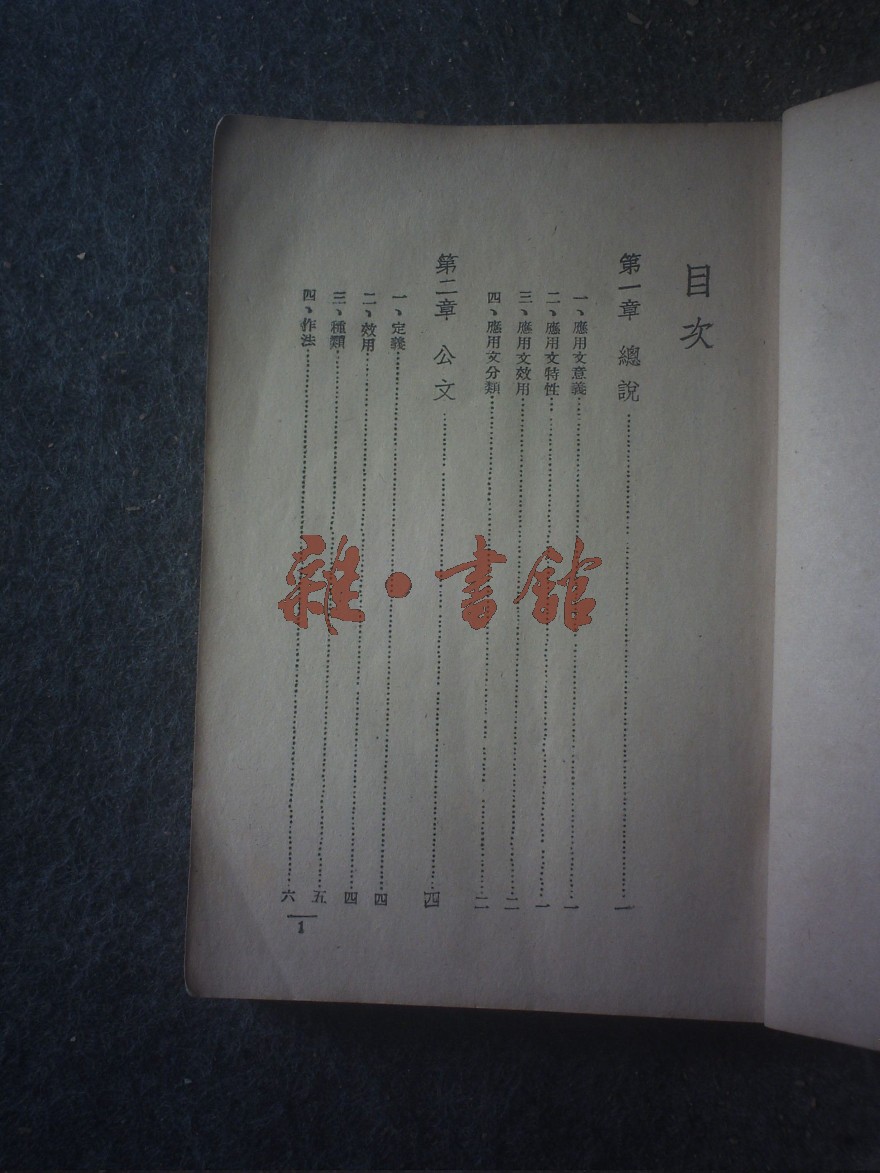 目次
第一章 總說……一
一、應用文意義……一
二、應用文特性……一
三、應用文效用……二
四、應用文分類……二
第二章 公文……四
一、定義……四
二、效用……四
三、種類……五
四、作法……六
1
雜·書館